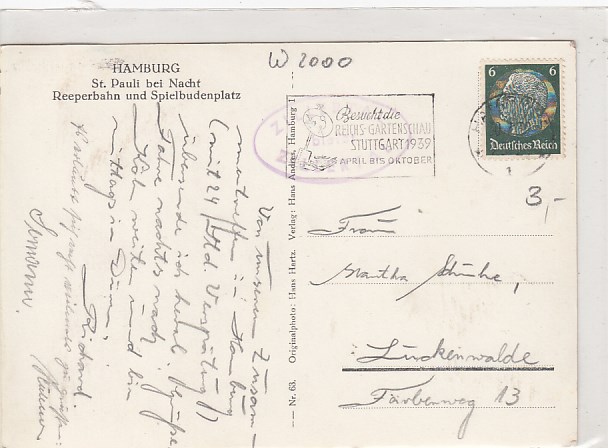 W 2000
HAMBURG
St. Pauli bei Nacht
Reeperbahn und Spielbudenplatz
Von unserem Zusam-
mentreffen in Hamburg
(mit 24 Std. Verspätung!)
übersende ich herzl. Grüße.
Fahre nachts nach
Köln weiter und bin
mittags in Düren.
Richard.
Nr. 63. Originalphoto: Hans Hartz. Verlag: Hans Andres, Hamburg 1
Besucht die
REICHS-GARTENSCHAU
STUTTGART 1939
APRIL BIS OKTOBER
6 6
Deutsches Reich
3,-
Frau
Martha Schulze,
Luckenwalde
Färbenweg 13